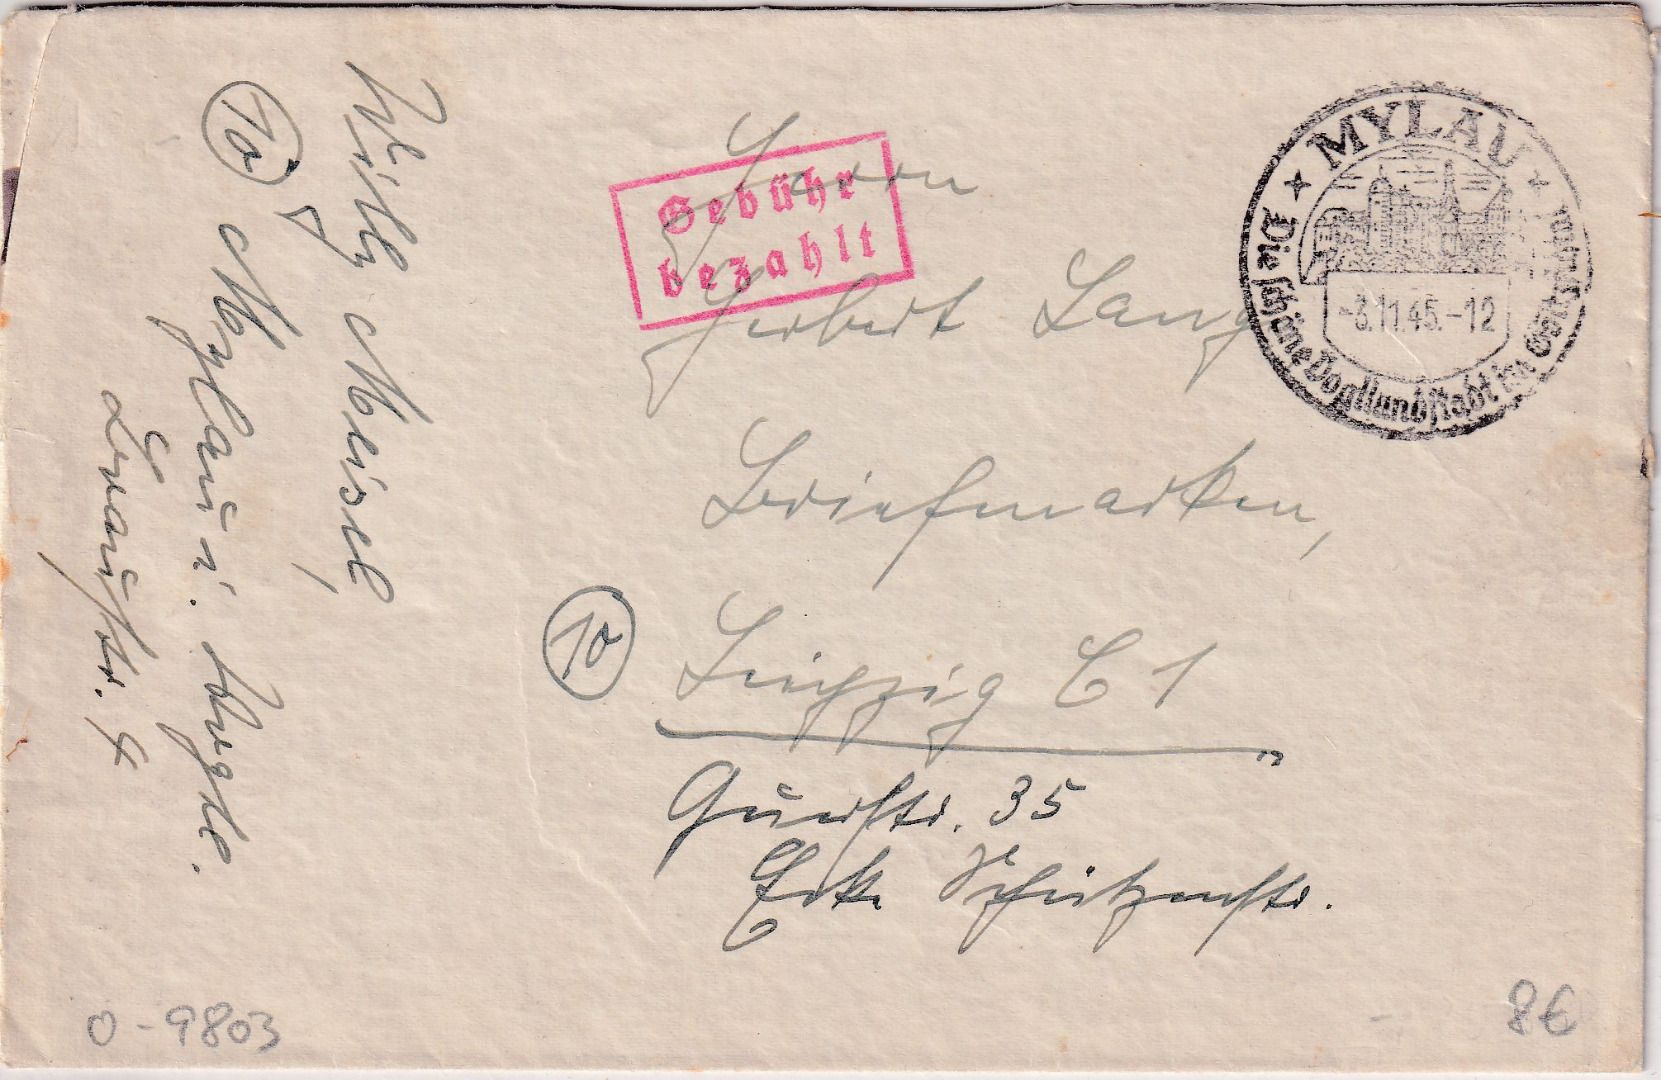 Willy Meisel,
10a
Mylau i. Vogtl.
Braustr. 4
Gebühr
bezahlt
MYLAU
-3.11.45.-12
Die schöne Vogtlandstadt im Göltzschtal
Herrn
Herbert Lang
Briefmarken,
10
Leipzig C 1
Querstr. 35
Ecke Schützenstr.
0-9803
8€